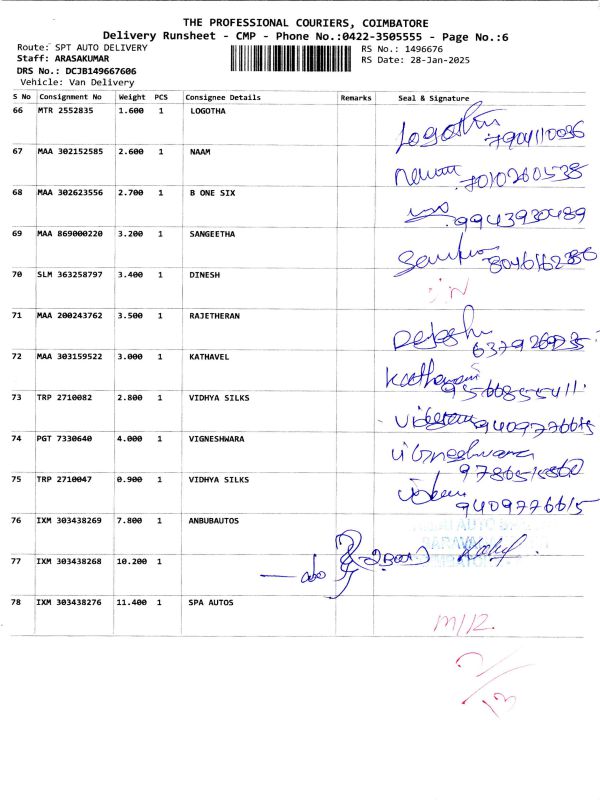 THE PROFESSIONAL COURIERS, COIMBATORE
Delivery Runsheet - CMP - Phone No.:0422-3505555 - Page No.:6
Route: SPT AUTO DELIVERY RS No.: 1496676
Staff: ARASAKUMAR RS Date: 28-Jan-2025
DRS No.: DCJB149667606
Vehicle: Van Delivery
S No Consignment No Weight PCS Consignee Details Remarks Seal & Signature
66 MTR 2552835 1.600 1 LOGOTHA
7904110036
67 MAA 302152585 2.600 1 NAAM
7010260538
68 MAA 302623556 2.700 1 B ONE SIX
9943930489
69 MAA 869000220 3.200 1 SANGEETHA
70 SLM 363258797 3.400 1 DINESH
71 MAA 200243762 3.500 1 RAJETHERAN
72 MAA 303159522 3.000 1 KATHAVEL
9566855411
73 TRP 2710082 2.800 1 VIDHYA SILKS
9409776615
74 PGT 7330640 4.000 1 VIGNESHWARA
Vigneshwara
75 TRP 2710047 0.900 1 VIDHYA SILKS
9409776615
76 IXM 303438269 7.800 1 ANBUBAUTOS
77 IXM 303438268 10.200 1
78 IXM 303438276 11.400 1 SPA AUTOS
M/R